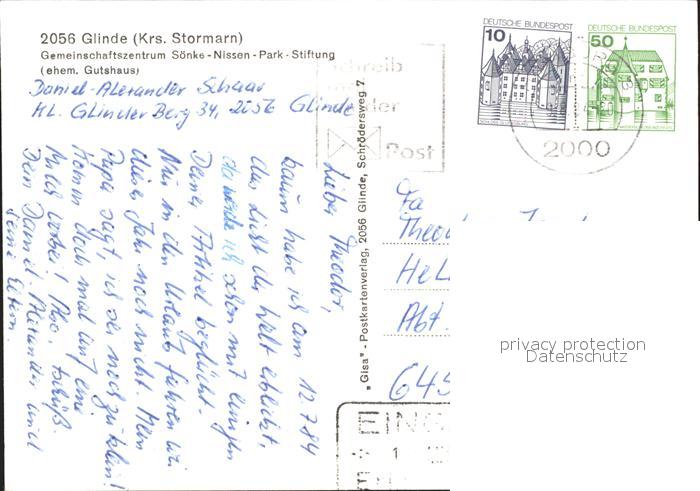 2056 Glinde (Krs. Stormarn)
Gemeinschaftszentrum Sönke-Nissen-Park-Stiftung
(ehem. Gutshaus)
Daniel-Alexander Schaar
KL. Glinder Berg 34, 2056 Glinde
DEUTSCHE BUNDESPOST
10
DEUTSCHE BUNDESPOST
50
Schreib
mal
wieder
Post
2000
"Gisa"-Postkartenverlag, 2056 Glinde, Schrödersweg 7
Lieber Theodor,
kaum habe ich am 12.7.84
das Licht der Welt erblickt,
da werde ich schon mit einigen
Deiner Artikel beglückt.
Nur in den Urlaub fahren wir
dies Jahr noch nicht. Mein
Papa sagt, ich sei noch zu klein!
Komm doch mal auf eine
Milch vorbei! Also, tschüß.
Dein Daniel-Alexander und
seine Eltern.
Fa
Theodor
Abt.
645
EING
1
privacy protection
Datenschutz